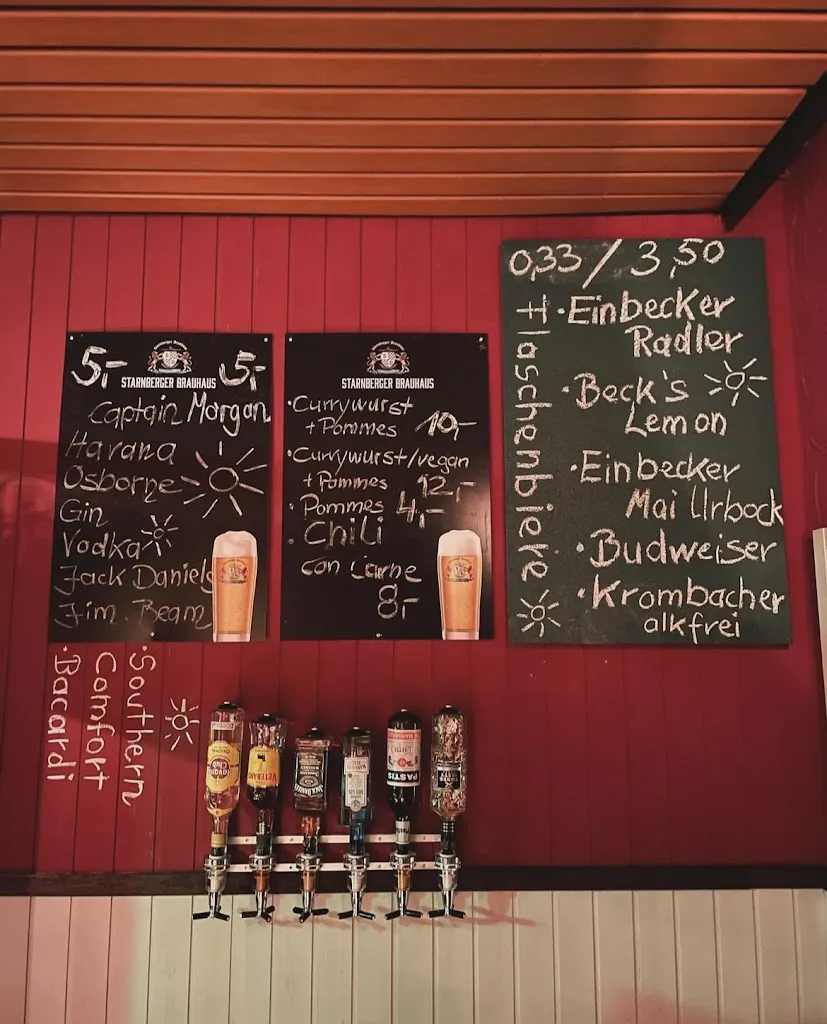 5,- 5,-
STARNBERGER BRAUHAUS
Captain Morgan
Havana
Osborne
Gin
Vodka
Jack Daniels
Jim Beam
·Southern
Comfort
·Bacardi
STARNBERGER BRAUHAUS
·Currywurst
+Pommes 10,-
·Currywurst/vegan
+Pommes 12,-
·Pommes 4,-
·Chili
con Carne
8,-
0,33/3,50
Flaschenbiere
·Einbecker
Radler
·Beck's
Lemon
·Einbecker
Mai Urbock
·Budweiser
·Krombacher
alkfrei
VETERANO
JACK DANIEL'S
PASTIS